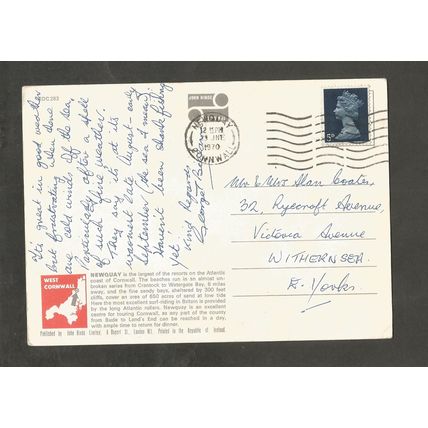 2DC 283
It's great in good weather
but frustrating when done
are cold winds off the sea,
Particularly after a spell
of such fine weather.
They say its at its
warmest late August - early
September (the sea I mean).
Haven't been shark fishing
yet.
Kind Regards
George
JOHN HINDE
NEWQUAY
12 15 PM
JNE
1970
CORNWALL
5D
Mr & Mrs Alan Coates,
32, Ryecroft Avenue,
Victoria Avenue
WITHERNSEA.
E. Yorks.
WEST
CORNWALL
NEWQUAY is the largest of the resorts on the Atlantic
coast of Cornwall. The beaches run in an almost un-
broken series from Crantock to Watergate Bay, 6 miles
away, and the fine sandy bays, sheltered by 300 feet
cliffs, cover an area of 650 acres of sand at low tide
Here the most excellent surf-riding in Britain is provided
by the long Atlantic rollers. Newquay is an excellent
centre for touring Cornwall, as any part of the county
from Bude to Land's End can be reached in a day,
with ample time to return for dinner.
Published by John Hinde Limited, 4 Rupert St., London W1. Printed in the Republic of Ireland.